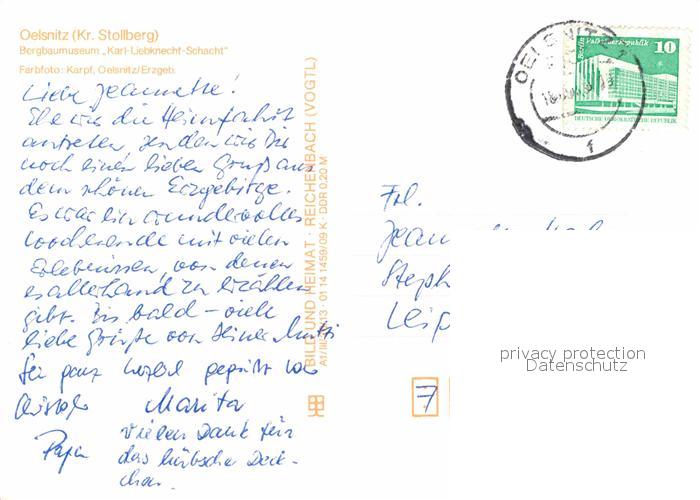 Oelsnitz (Kr. Stollberg)
Bergbaumuseum „Karl-Liebknecht-Schacht"
Farbfoto: Karpf, Oelsnitz/Erzgeb.
Liebe Jeannette!
Ehe wir die Heimfahrt
antreten, senden wir Dir
noch einen lieben Gruß aus
dem schönen Erzgebirge.
Es war ein wundervolles
Wochenende mit vielen
Erlebnissen, von denen
es allerhand zu erzählen
gibt. Bis bald – viele
liebe Grüße von Deiner Mutti
Sei ganz herzlich gegrüßt von
Marita
Papa
Vielen Dank für
das hübsche Deck-
chen.
BILD UND HEIMAT · REICHENBACH (VOGTL)
01 14 1459/09 K · DDR 0,20 M
OELSNITZ
1
Berlin, Palast der Republik 10
DEUTSCHE DEMOKRATISCHE REPUBLIK
Frl.
Jean
Steph
Leip
7
privacy protection
Datenschutz